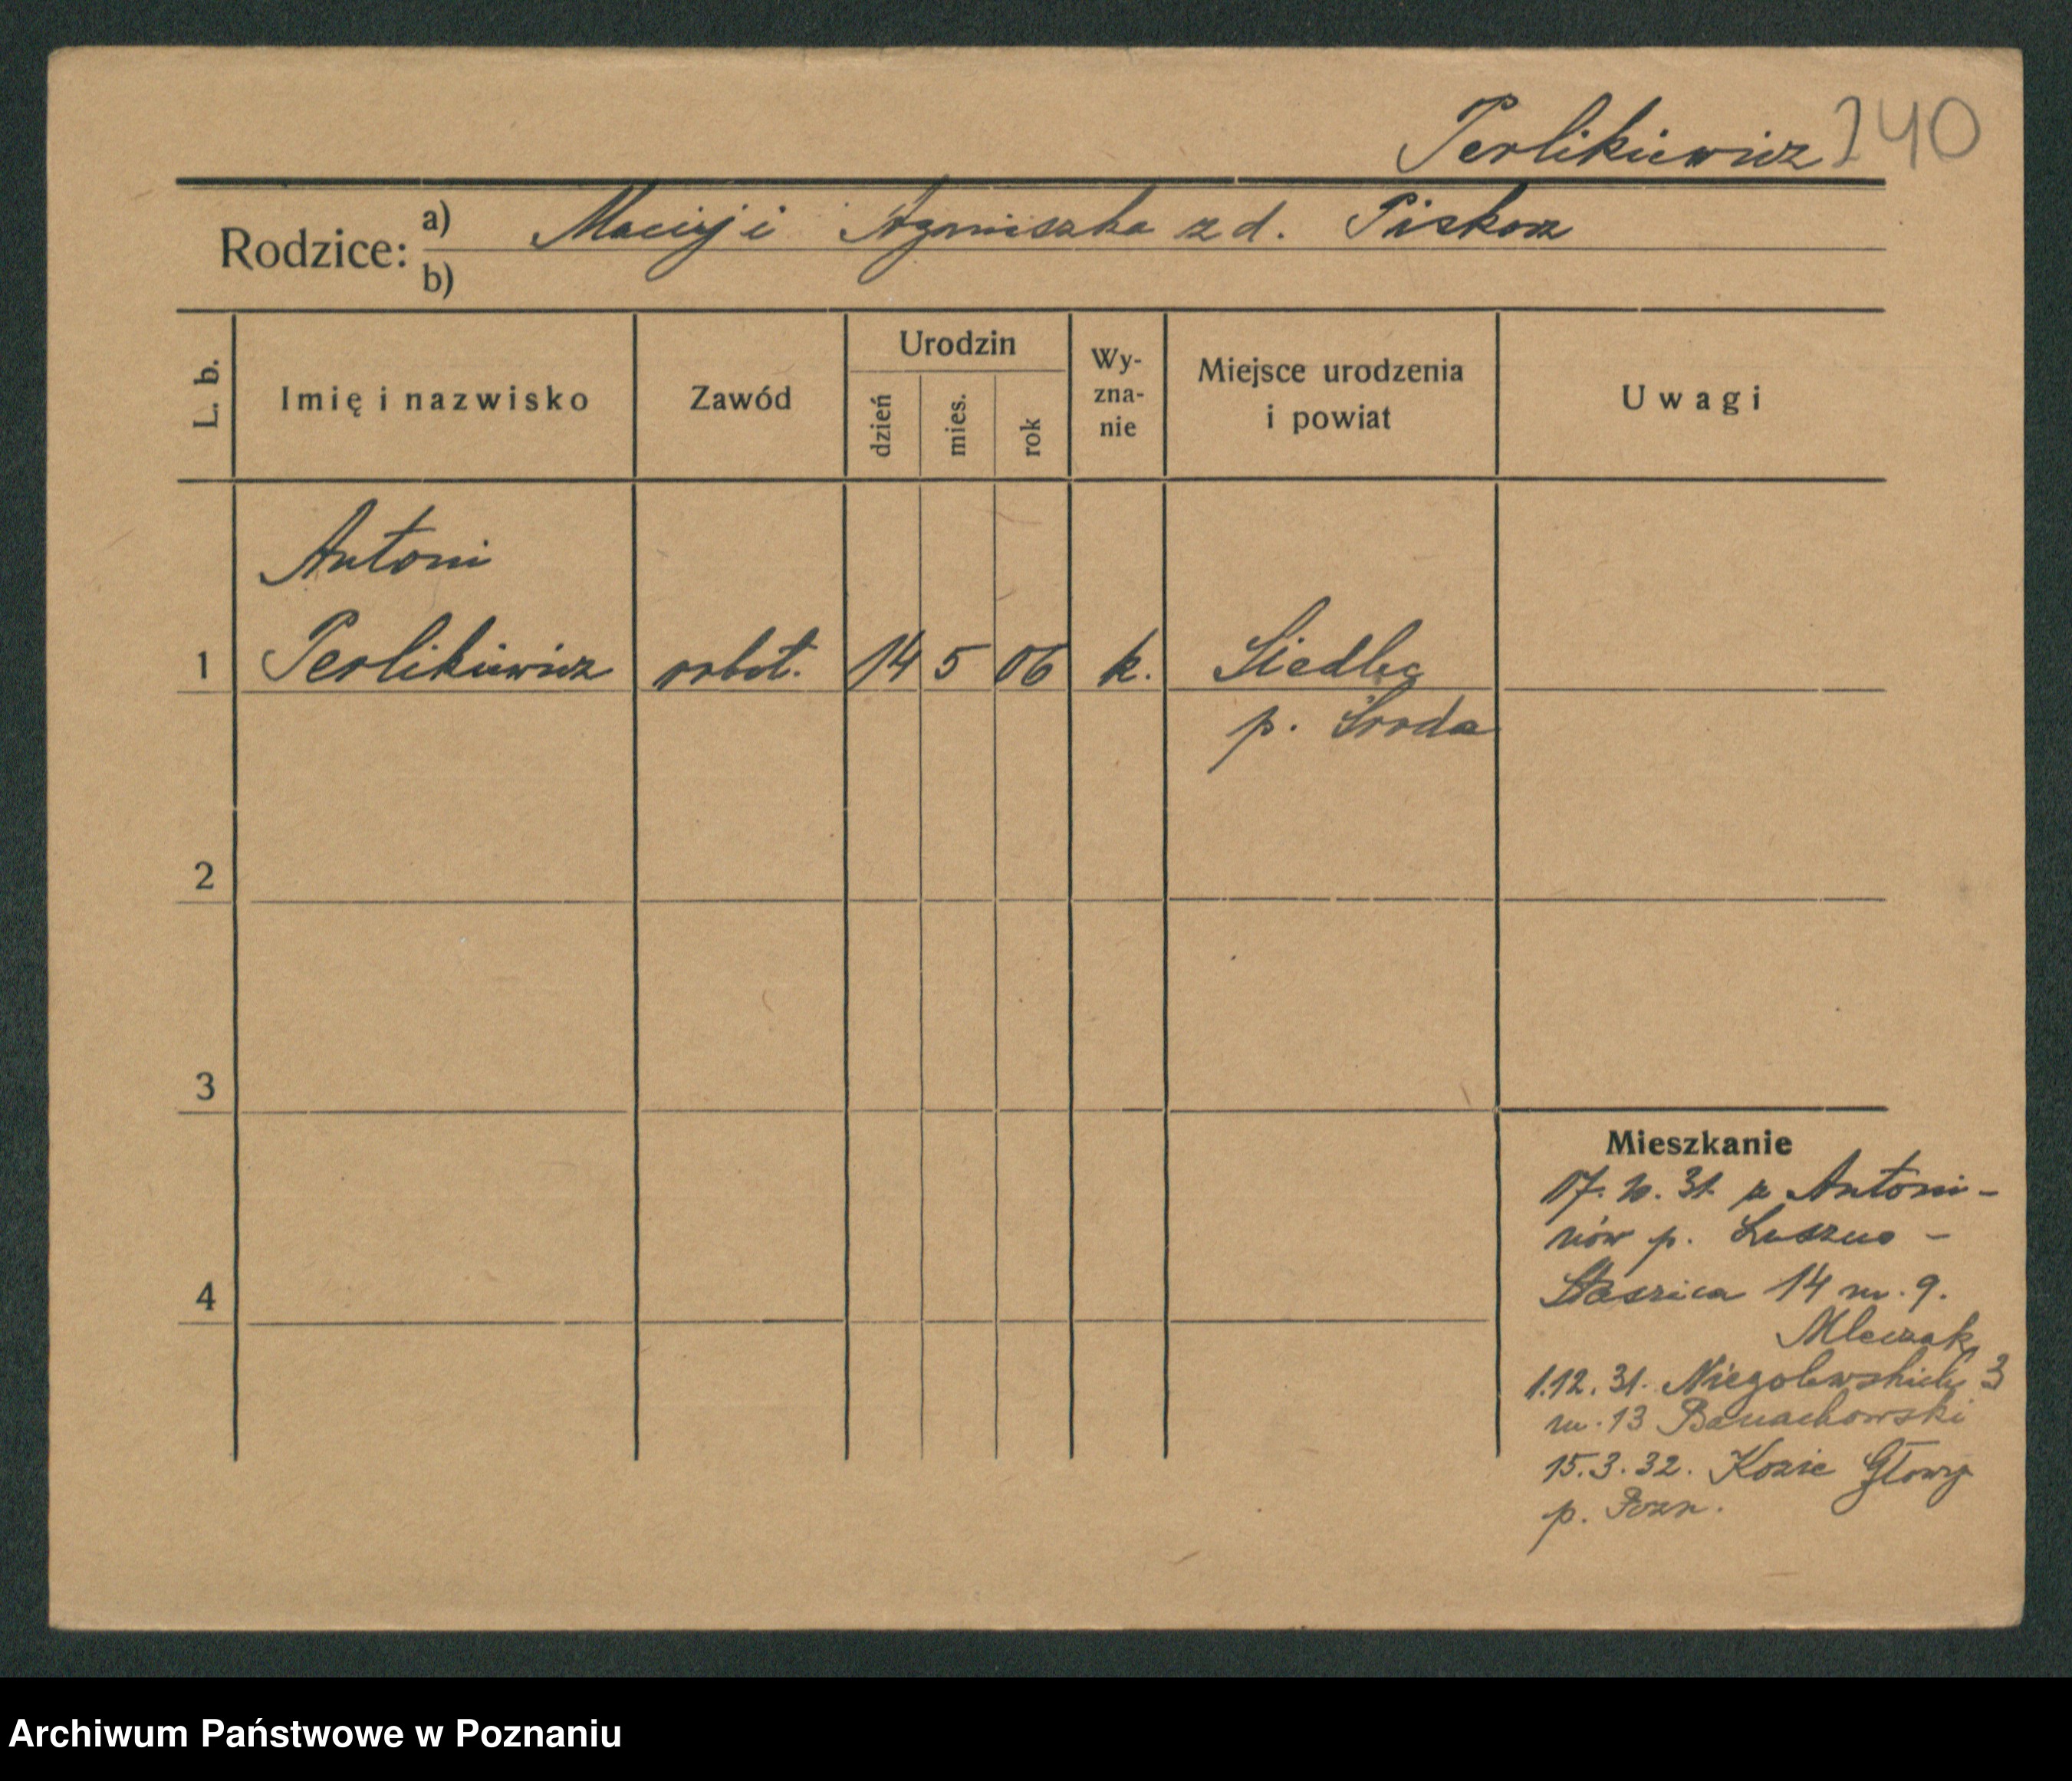 Perlikiewicz 240
Rodzice: a) Maciej i Agnieszka z d. Piskorz
b)
L. b. Imię i nazwisko Zawód Urodzin dzień mies. rok Wy-zna-nie Miejsce urodzenia i powiat Uwagi
Antoni
1 Perlikiewicz robot. 14 5 06 k. Siedlec
p. Środa
2
3
Mieszkanie
17. 10. 31. z Antoni-
nów p. Leszno -
4 Staszica 14 m. 9.
Mleczak
1.12. 31. Niegolewskich 3
m. 13 Banachowski
15.3.32. Kozie Głowy
p. Pozn.
Archiwum Państwowe w Poznaniu